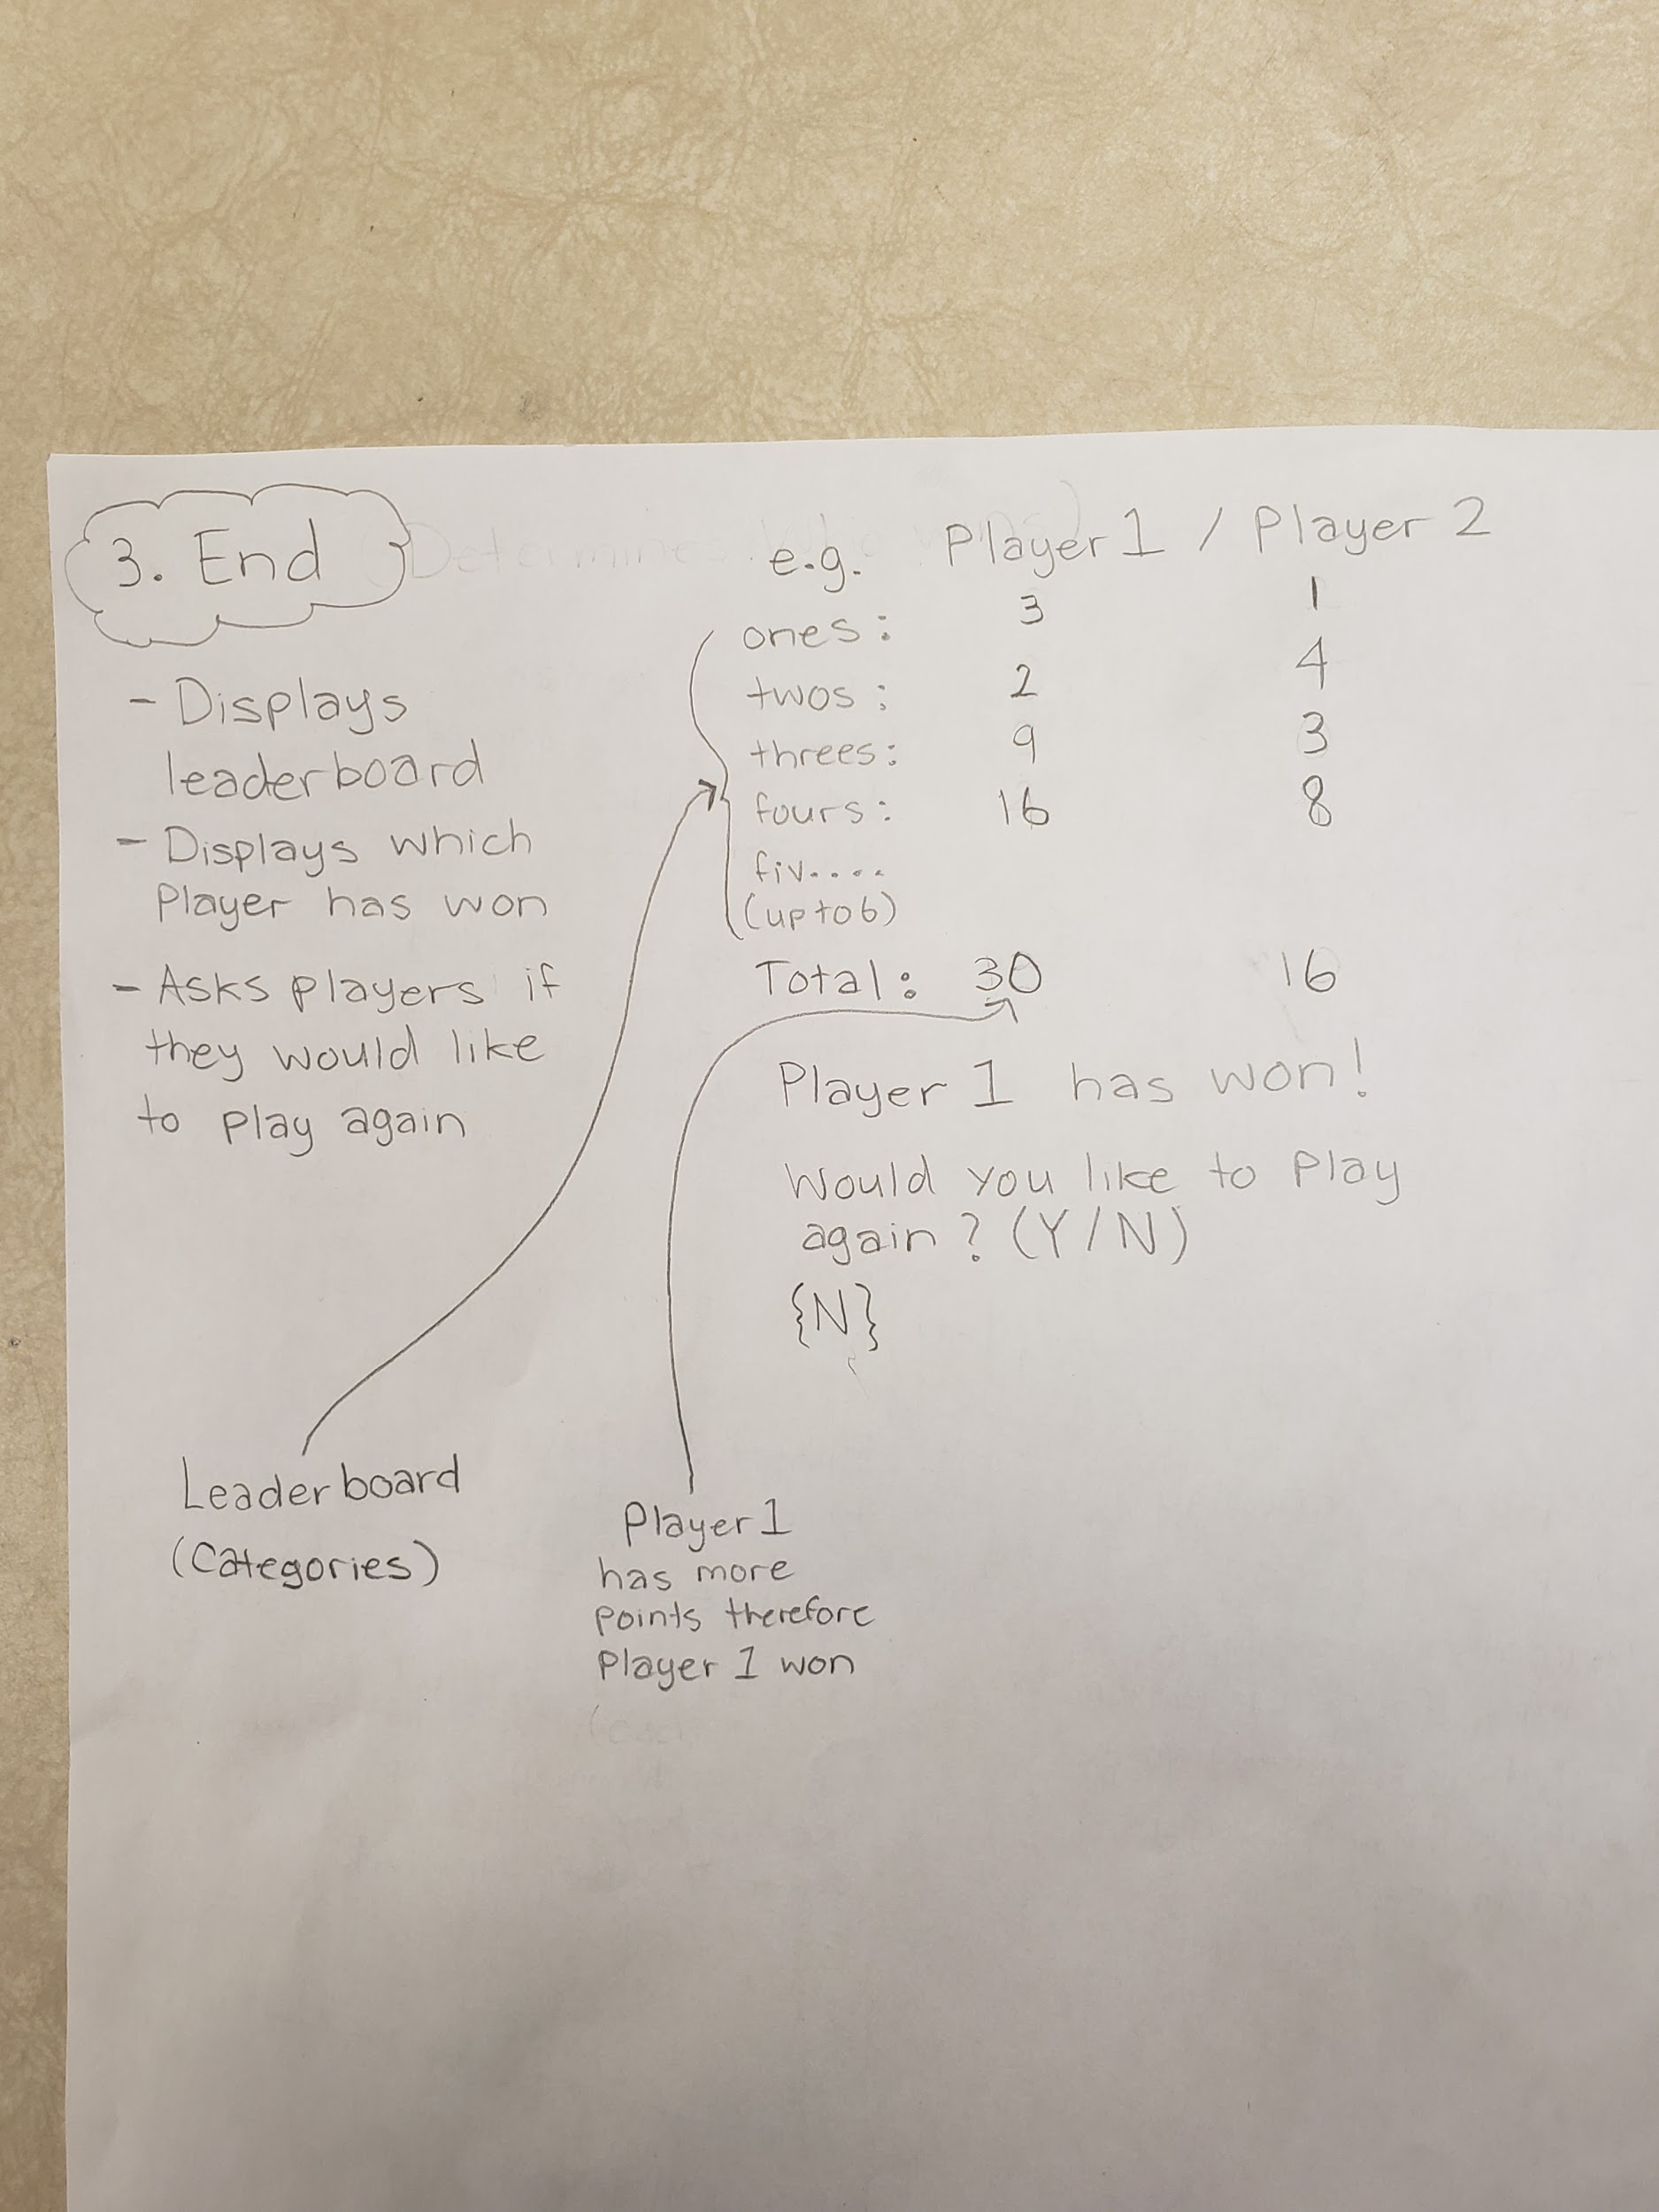 3. End
- Displays
leaderboard
- Displays which
Player has won
- Asks players if
they would like
to play again
e.g. Player 1 / Player 2
ones: 3 1
twos: 2 4
threes: 9 3
fours: 16 8
fiv....
(up to 6)
Total: 30 16
Player 1 has won!
Would you like to play
again? (Y/N)
{N}
Leaderboard
(Categories)
Player 1
has more
points therefore
Player 1 won